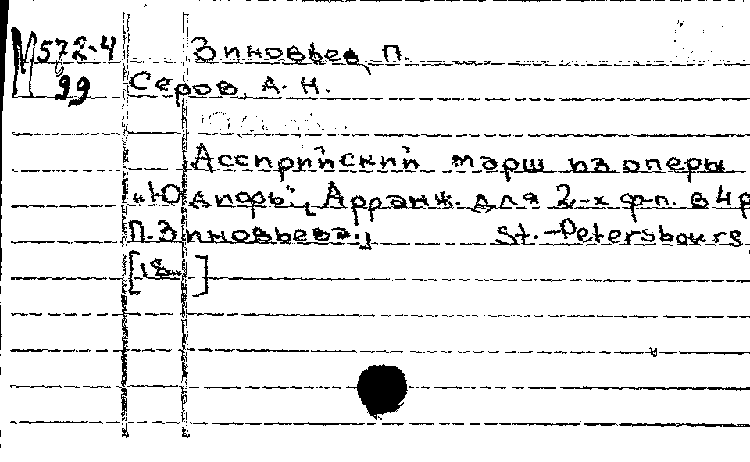 М 572-4 Зиновьев, П.
99 Серов, А. Н.
Ассирийский марш из оперы
„Юдифь", Арранж. для 2-х ф-п. в 4 р
П. Зиновьева.
St.-Petersbourg,
[18 ]